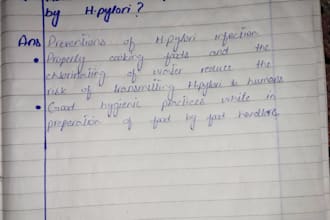 by H.pylori ?
Ans Preventions of H.pylori infection
• Properly cooking foods and the
chlorinating of water reduce the
risk of transmitting H.pylori to humans
• Good hygienic practices while in
preparation of food by food handlers